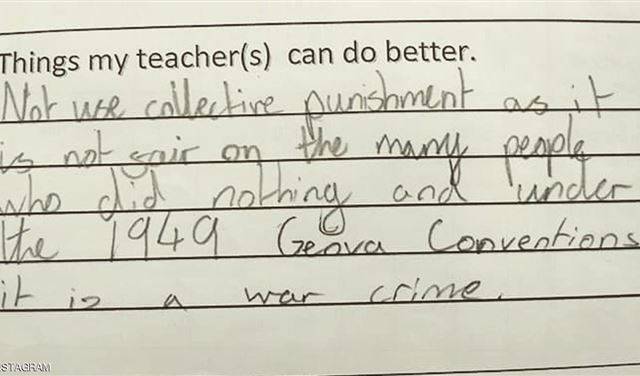 Things my teacher(s) can do better.
Not use collective punishment as it
is not fair on the many people
who did nothing and under
the 1949 Genva Conventions
it is a war crime.
STAGRAM